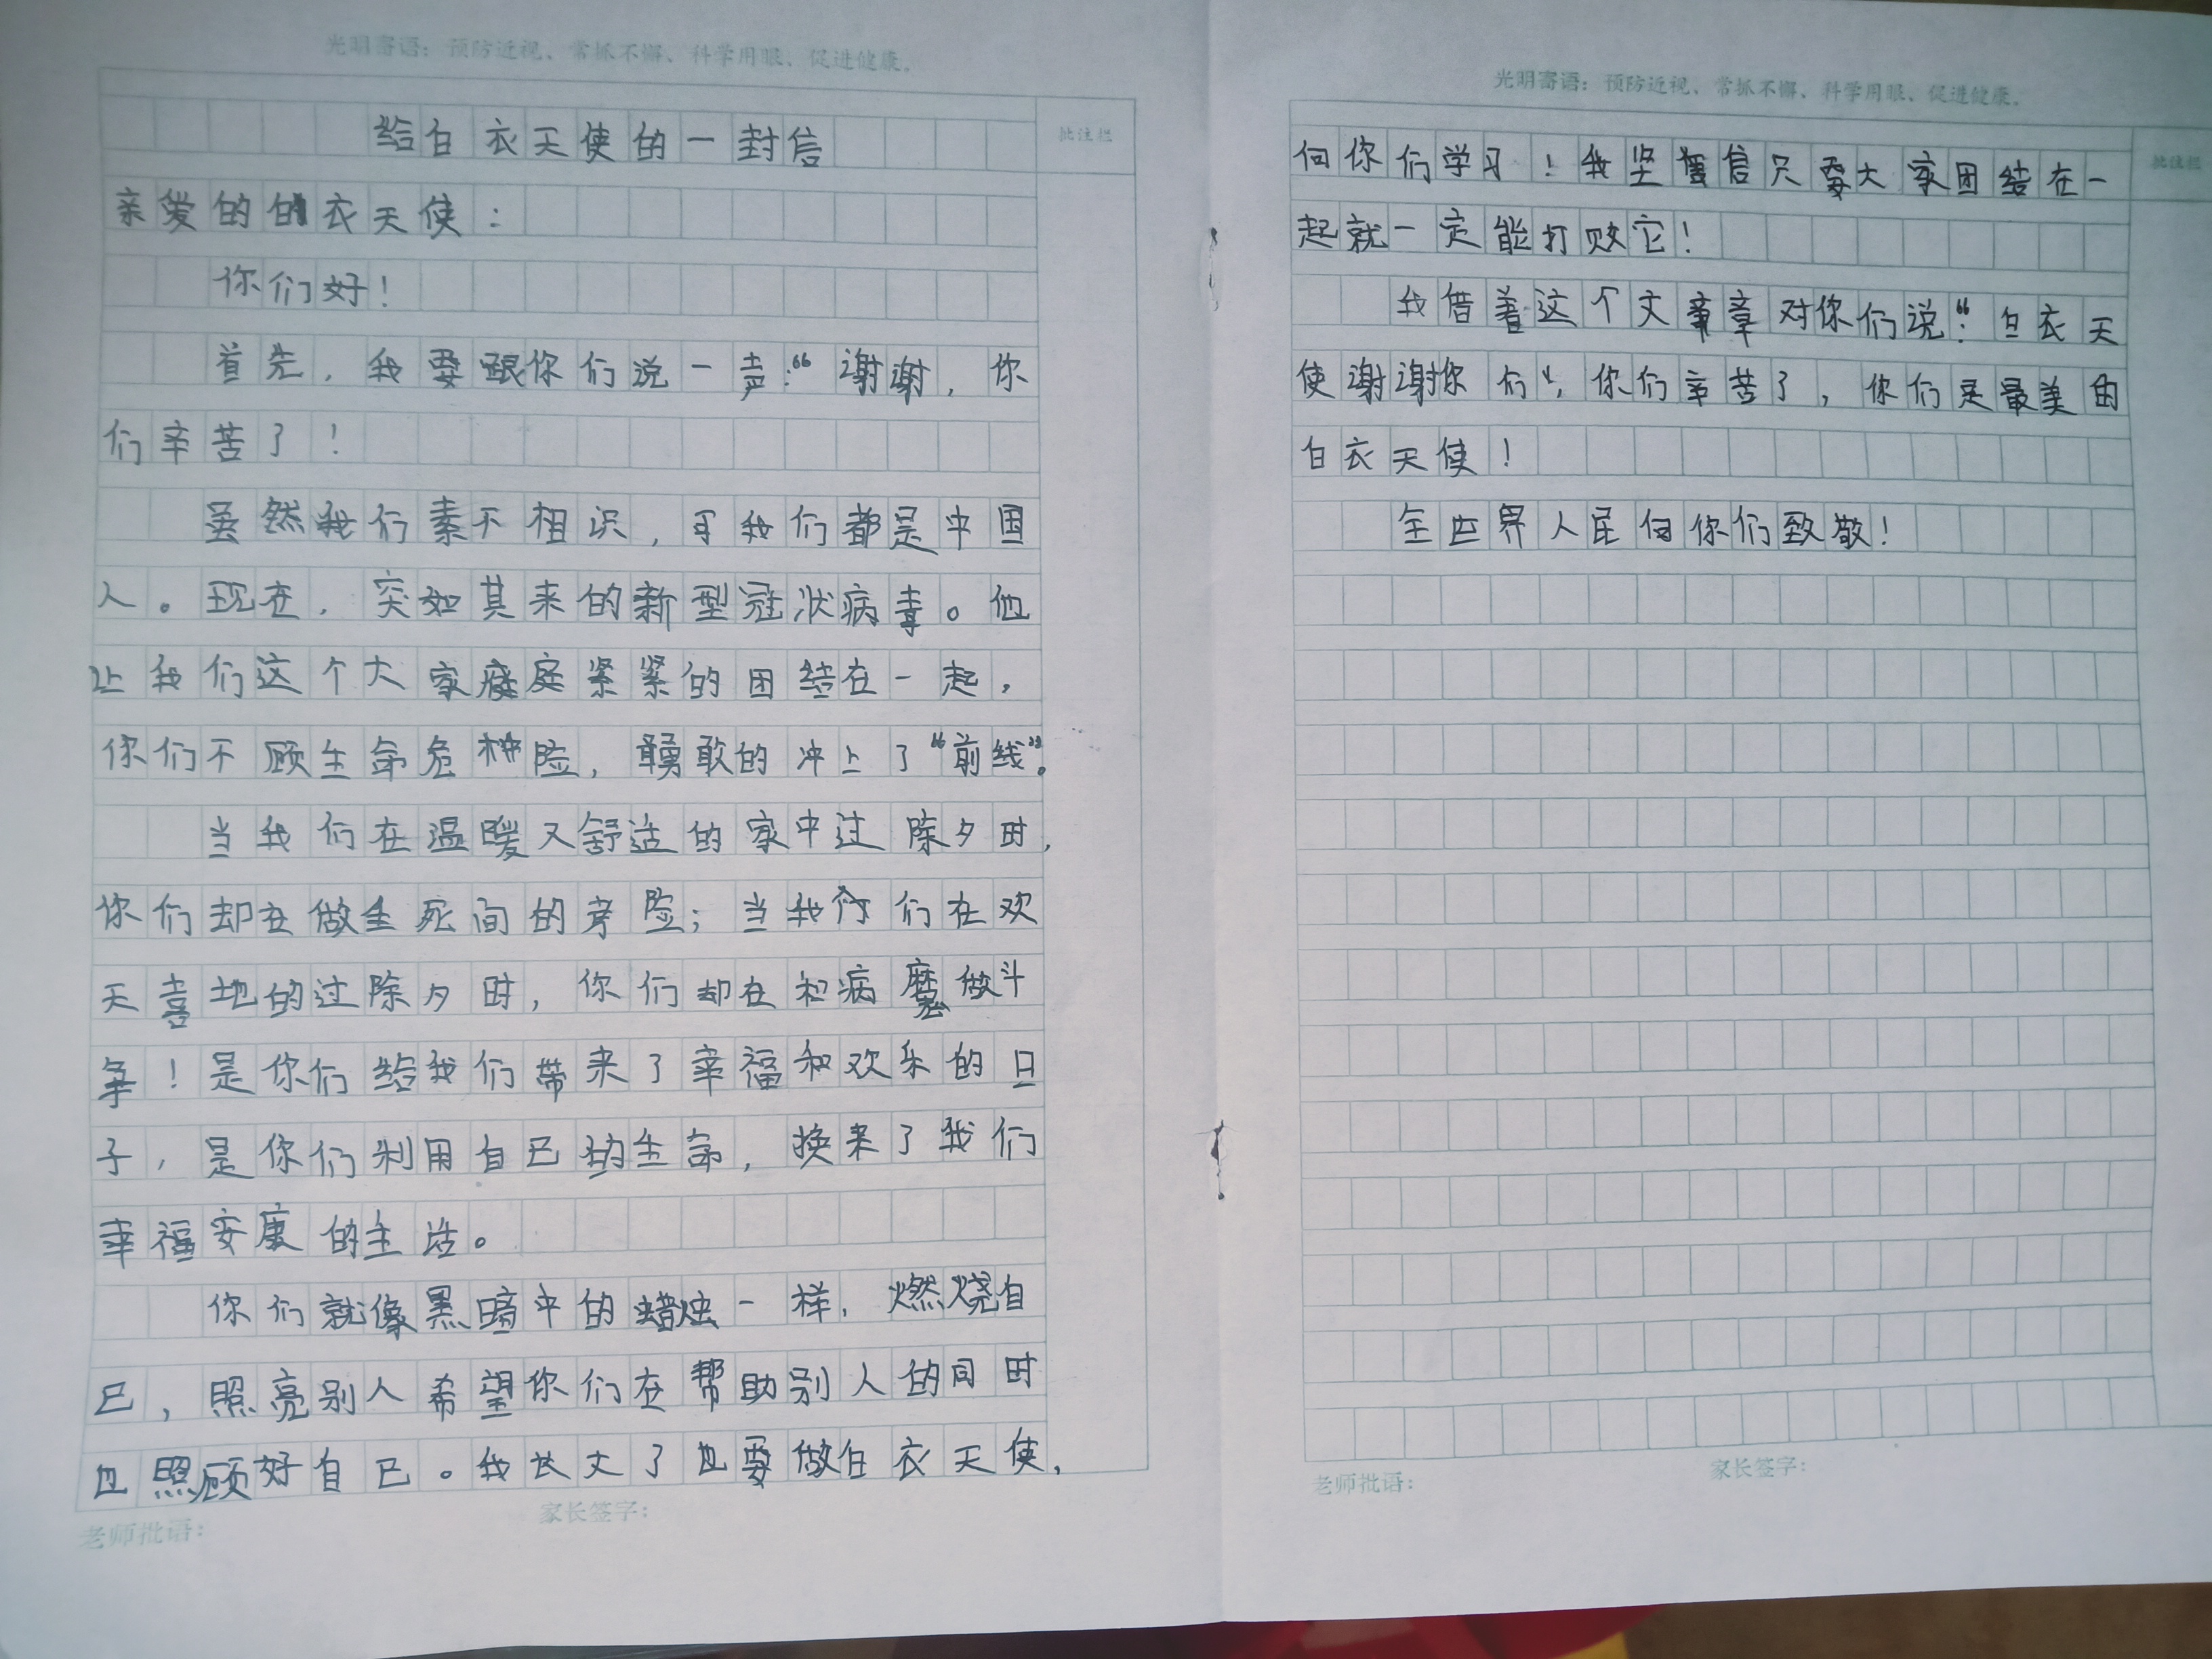 光明寄语：预防近视、常抓不懈、科学用眼、促进健康。
批注栏
给白衣天使的一封信
亲爱的白衣天使：
你们好！
首先，我要跟你们说一声：“谢谢，你
们辛苦了！
虽然我们素不相识，可我们都是中国
人。现在，突如其来的新型冠状病毒。他
让我们这个大家庭紧紧的团结在一起，
你们不顾生命危险，勇敢的冲上了“前线”。
当我们在温暖又舒适的家中过除夕时，
你们却在做生死间的穿险；当我们在欢
天喜地的过除夕时，你们却在和病魔做斗
争！是你们给我们带来了幸福和欢乐的日
子，是你们利用自己的生命，换来了我们
幸福安康的生活。
你们就像黑暗中的蜡烛一样，燃烧自
已，照亮别人希望你们在帮助别人的同时
也照顾好自已。我长大了也要做白衣天使，
老师批语：
家长签字：
光明寄语：预防近视、常抓不懈、科学用眼、促进健康。
批注栏
向你们学习！我坚信只要大家团结在一
起就一定能打败它！
我借着这个文章对你们说：“白衣天
使谢谢你们”，你们辛苦了，你们是最美的
白衣天使！
全世界人民向你们致敬！
老师批语：
家长签字：